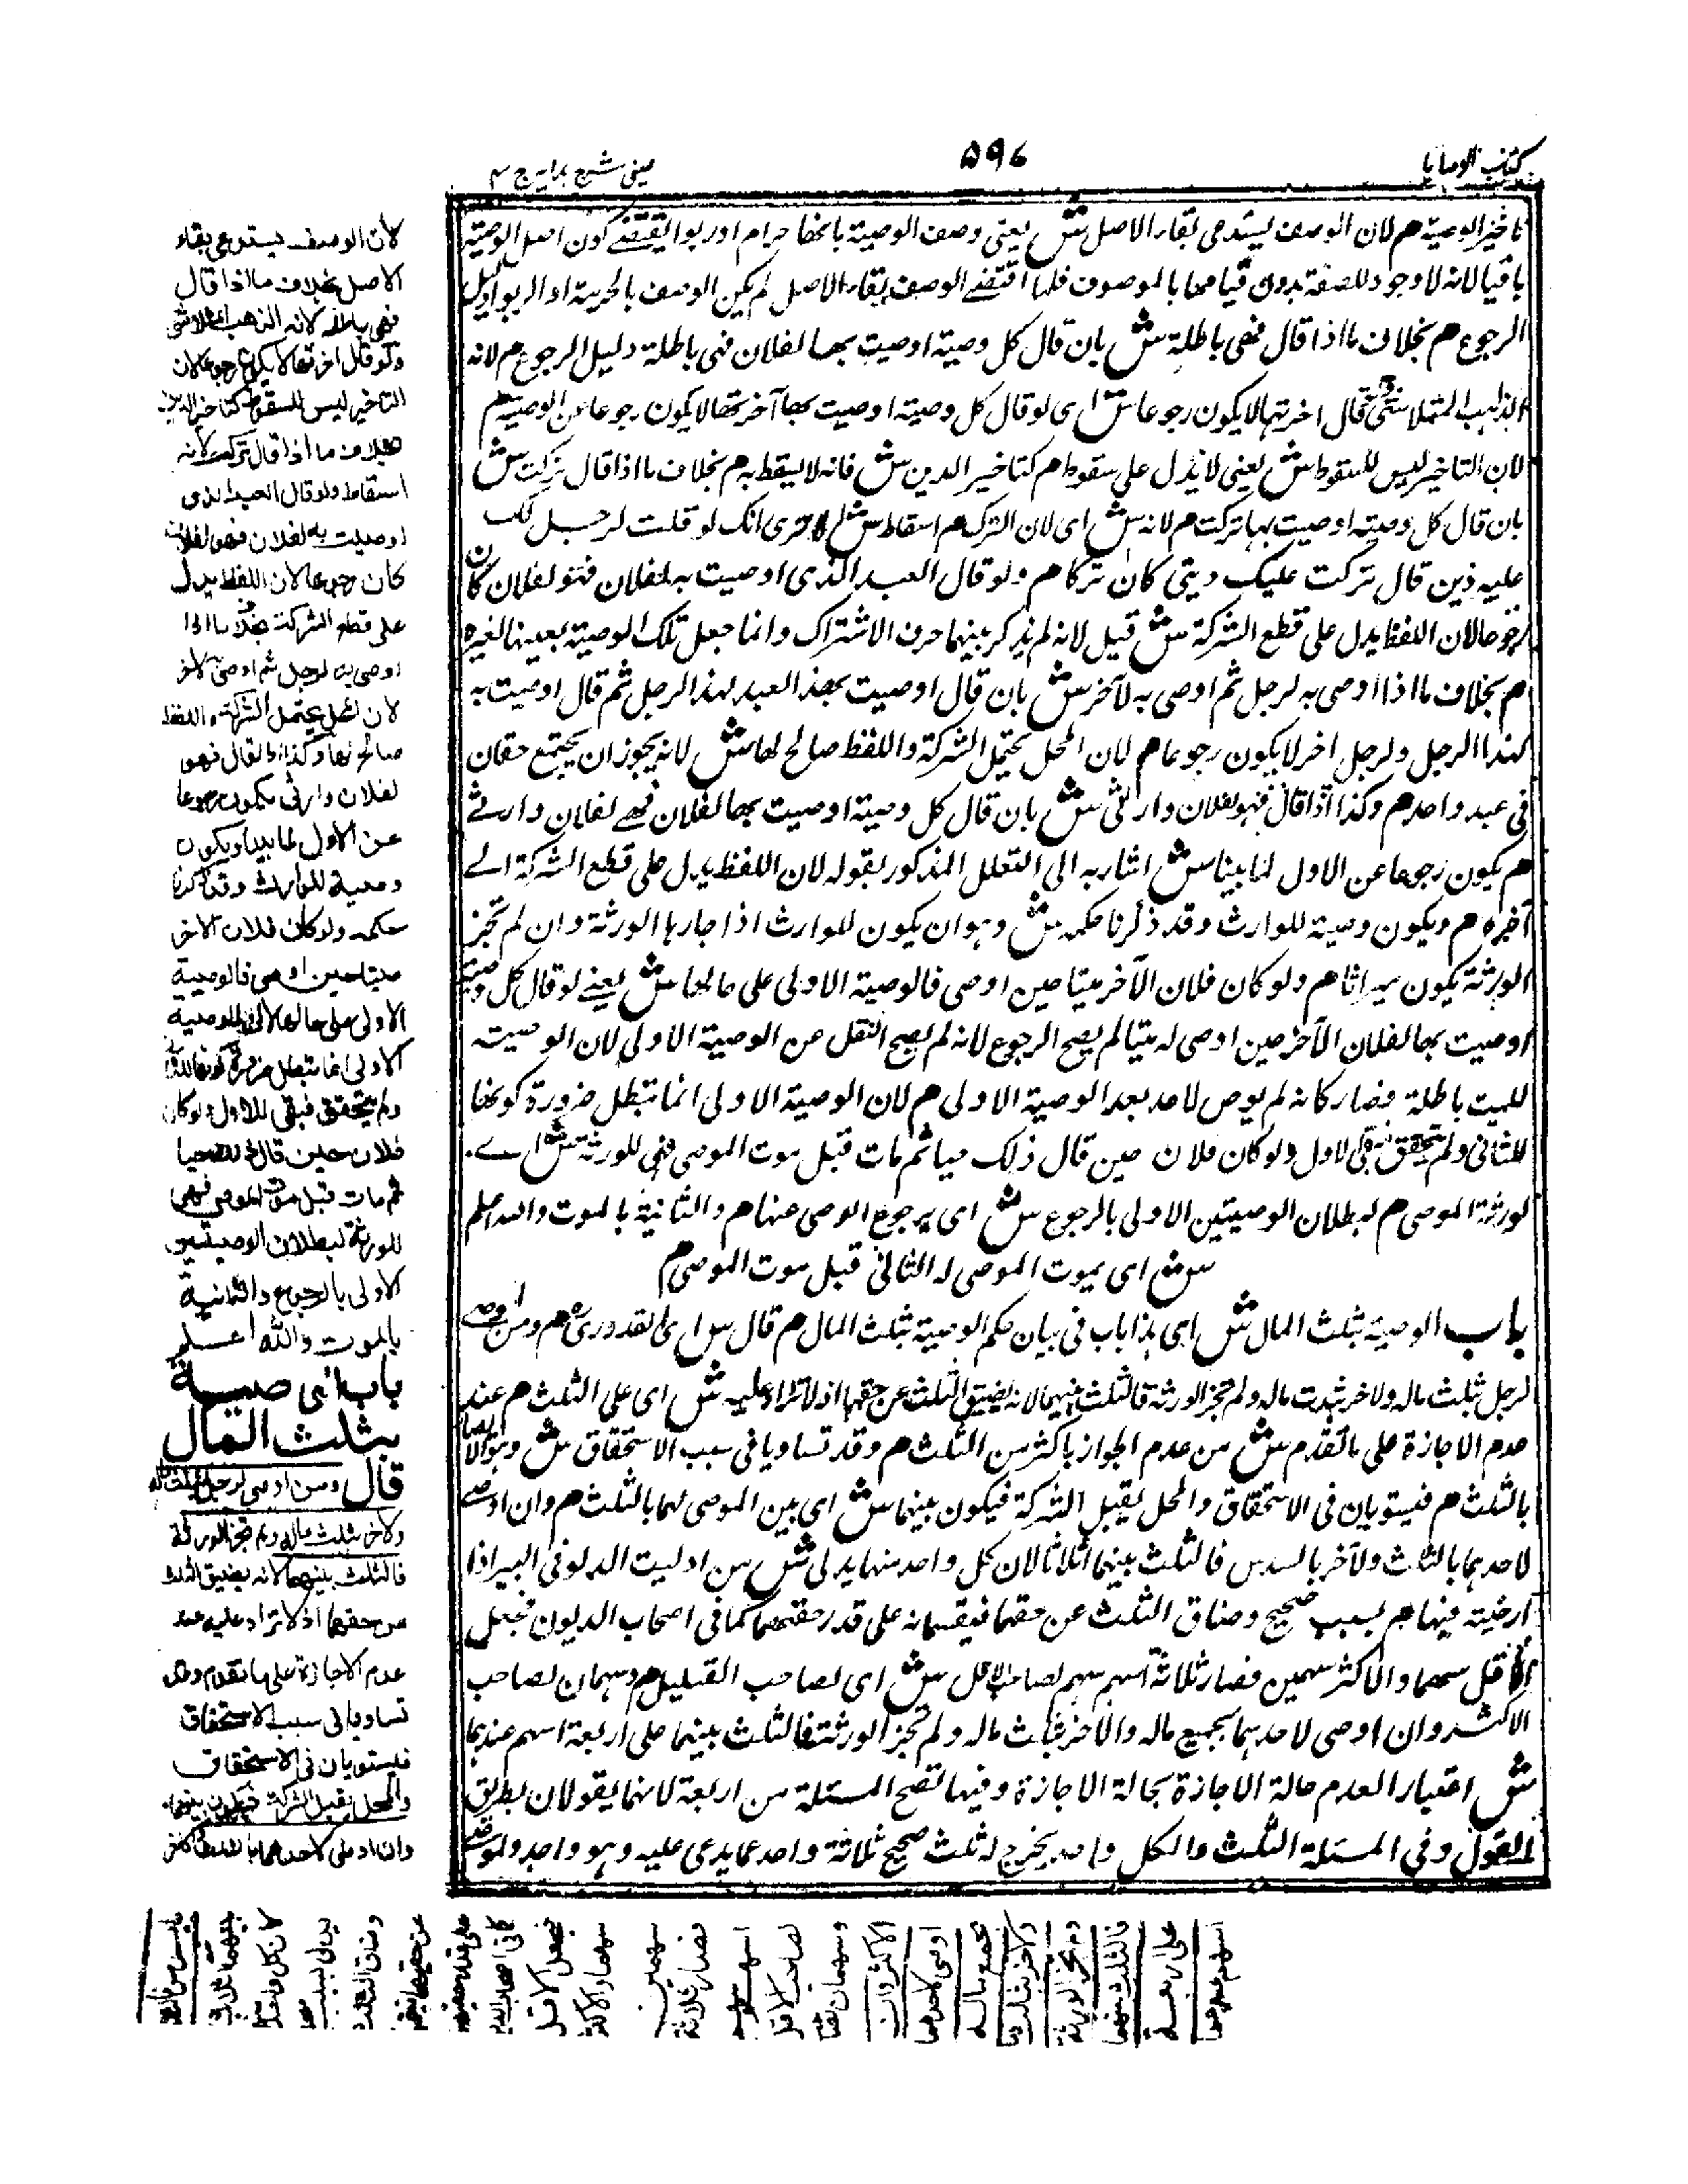 كتاب الوصايا
۵۹۶
عينى شرح هدايه ج ۴
م لان الوصف يستدعى بقاء الاصل ش يعنى وصف الوصية بانها حرام او ربوا يقتضے كون اصل الوصية
باقيا لانه لا وجود للصفة بدون قيامها بالموصوف فلما اقتضے الوصف بقاء الاصل لم يكن الوصف بالحرمة او الربوا دليل
الرجوع م بخلاف ما اذا قال فهى باطلة ش بان قال كل وصية اوصيت بها لفلان فهى باطلة دليل الرجوع م لانه
الذاهب المتلاشى قال اخرتها لا يكون رجوعا ش اى لو قال كل وصية اوصيت بها اخرتها لا يكون رجوعا عن الوصية م
لان التاخير ليس للسقوط ش يعنى لا يدل على سقوط م كتاخير الدين ش فانه لا يسقط به م بخلاف ما اذا قال تركت ش
بان قال كل وصية اوصيت بها تركت م لانه ش اى لان الترك م اسقاط ش الا ترى انك لو قلت لرجل لك
عليه دين قال تركت عليك دينى كان تركا م ولو قال العبد الذى اوصيت به لفلان فهو لفلان كان
رجوعا لان اللفظ يدل على قطع الشركة ش قيل لانه لم يذكر بينهما حرف الاشتراك وانما جعل تلك الوصية بعينها لغيره
م بخلاف ما اذا اوصى به لرجل ثم اوصى به لآخر ش بان قال اوصيت بهذا العبد لهذا الرجل ثم قال اوصيت به
لهذا الرجل ولرجل اخر لا يكون رجوعا م لان المحل يحتمل الشركة واللفظ صالح لها ش لانه يجوز ان يجتمع حقان
فى عبد واحد م وكذا اذا قال فهو لفلان وارثى ش بان قال كل وصية اوصيت بها لفلان فهے لفلان وارثے
م يكون رجوعا عن الاول لما بينا ش اشار به الى التعلل المذكور بقوله لان اللفظ يدل على قطع الشركة الے
آخره م ويكون وصية للوارث وقد ذكرنا حكمه ش وهو ان يكون للوارث اذا جازها الورثة وان لم تجز
الورثة يكون ميراثا م ولو كان فلان الآخر ميتا حين اوصى فالوصية الاولى على حالها ش يعنے لو قال كل وصية
اوصيت بها لفلان الآخر حين اوصى له ميتا لم يصح الرجوع لانه لم يصح النقل من الوصية الاولى لان الوصيت
للميت باطلة فصار كانه لم يوص لاحد بعد الوصية الاولى م لان الوصية الاولى انما تبطل ضرورة كونها
للثانى ولم يتحقق فبقى للاول ولو كان فلان حين قال ذلك حيا ثم مات قبل موت الموصى فهى للورثة ش اے
لورثة الموصى م لبطلان الوصيتين الاولى بالرجوع ش اى برجوع الموصى عنها م والثانية بالموت والله اعلم
ش اى بموت الموصى له الثانى قبل موت الموصى م
باب الوصية بثلث المال ش اى هذا باب فى بيان حكم الوصية بثلث المال م قال ش اى القدورى م ومن اوصے
لرجل بثلث ماله ولاخر بثلث ماله ولم تجز الورثة فالثلث بينهما لانه يضيق الثلث عن حقهما اذ لا تزاد عليه ش اى على الثلث م عند
عدم الاجازة على ما تقدم ش من عدم الجواز باكثر من الثلث م وقد تساويا فى سبب الاستحقاق ش وهو الايصا
بالثلث م فيستويان فى الاستحقاق والمحل يقبل الشركة فيكون بينهما ش اى بين الموصى لهما بالثلث م وان اوصے
لاحدهما بالثلث ولآخر بالسدس فالثلث بينهما اثلاثا لان كل واحد منهما يدلى ش من ادليت الدلو فى البير اذا
ارخيته فيها م بسبب صحيح وضاق الثلث عن حقهما فيقسمانه على قدر حقهما كما فى اصحاب الديون فجعل
الاقل سهما والاكثر سهمين فصار ثلاثة اسهم سهم لصاحب الاقل ش اى لصاحب القليل م وسهمان لصاحب
الاكثر وان اوصى لاحدهما بجميع ماله والاخر بثلث ماله ولم تجز الورثة فالثلث بينهما على اربعة اسهم عندهما
ش اعتبار العدم حالة الاجازة بحالة الاجازة وفيها تصح المسئلة من اربعة لانهما يقولان بطريق
القول وفى المسئلة الثلث والكل واحد يخرج له ثلث صحيح ثلاثة واحد عما يدعى عليه وهو واحد
لان الوصف يستدعى بقاء
الاصل بخلاف ما اذا قال
فهى باطلة لانه الذاهب المتلاشى
ولو قال اخرتها لا يكون رجوعا لان
التاخير ليس للسقوط كتاخير الدين
بخلاف ما اذا قال تركت لانه
اسقاط ولو قال العبد الذى
اوصيت به لفلان فهو لفلان
كان رجوعا لان اللفظ يدل
على قطع الشركة بخلاف ما اذا
اوصى به لرجل ثم اوصى لاخر
لان المحل يحتمل الشركة واللفظ
صالح لها وكذا اذا قال فهو
لفلان وارثى يكون رجوعا
عن الاول لما بينا ويكون
وصية للوارث وقد ذكرنا
حكمه ولو كان فلان الآخر
ميتا حين اوصى فالوصية
الاولى على حالها لان الوصية
الاولى انما تبطل ضرورة كونها للثانى
ولم يتحقق فبقى للاول ولو كان
فلان حين قال ذلك حيا
ثم مات قبل موت الموصى فهى
للورثة لبطلان الوصيتين
الاولى بالرجوع والثانية
بالموت والله اعلم
باب الوصية
بثلث المال
قال ومن اوصى لرجل بثلث ماله
ولاخر بثلث ماله ولم تجز الورثة
فالثلث بينهما لانه يضيق الثلث
عن حقهما اذ لا تزاد عليه عند
عدم الاجازة على ما تقدم وقد
تساويا فى سبب الاستحقاق
فيستويان فى الاستحقاق
والمحل يقبل الشركة فيكون بينهما
وان اوصى لاحدهما بالثلث وللاخر
بالسدس فالثلث
بينهما اثلاثا
لان كل واحد منهما
يدلى بسبب صحيح
وضاق الثلث
عن حقهما فيقسمانه
على قدر حقهما
كما فى اصحاب الديون
فجعل الاقل
سهما والاكثر
سهمين
فصار ثلاثة
اسهم سهم
لصاحب الاقل
وسهمان لصاحب
الاكثر وان
اوصى لاحدهما
بجميع ماله
ولاخر بثلث ماله
ولم تجز الورثة
فالثلث بينهما
على اربعة
اسهم عندهما